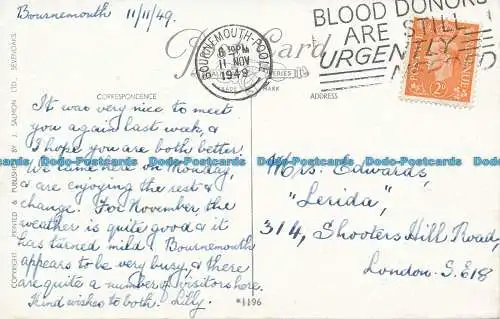 Bournemouth 11/11/49.
BLOOD DONORS
ARE STILL
URGENTLY
BOURNEMOUTH-POOLE
6 30PM
11 NOV
1949
Post Card
CORRESPONDENCE
ADDRESS
TRADE MARK
It was very nice to meet
you again last week, &
I hope you are both better.
We came here on Monday,
& are enjoying the rest &
change. For November, the
weather is quite good & it
has turned mild. Bournemouth
appears to be very busy, & there
are quite a number of visitors here.
Kind wishes to both. Lilly.
Mrs. Edwards,
"Lerida",
314, Shooters Hill Road,
London. S.E18
*1196
COPYRIGHT PRINTED & PUBLISHED BY J. SALMON LTD., SEVENOAKS
2D
Dodo-Postcards Dodo-Postcards Dodo-Postcards Dodo-Postcards Dodo-Postcards